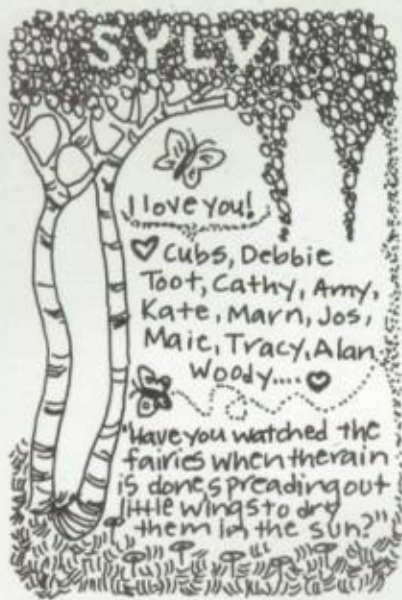 SYLVI
I love you!
♡ Cubs, Debbie
Toot, Cathy, Amy,
Kate, Marn, Jos,
Maie, Tracy, Alan
Woody.... ♡
"Have you watched the
fairies when the rain
is done spreading out
little wings to dry
them in the sun?"